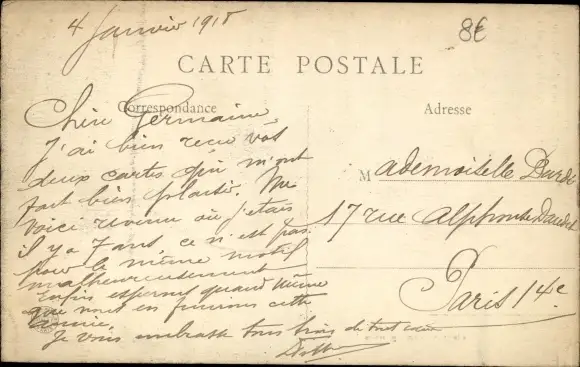 4 Janvier 1915
8€
CARTE POSTALE
Correspondance
Adresse
Chère Germaine,
J'ai bien reçu vos
deux cartes qui m'ont
fort bien plaisir. Me
voici revenu où j'étais
il y a 7 ans, ce n'est pas
pour le même motif
malheureusement
Enfin espérons quand même
que nous en finirons cette
année.
Je vous embrasse tous trois de tout cœur
Mademoiselle
17 rue Alphonse Daudet
Paris 14e